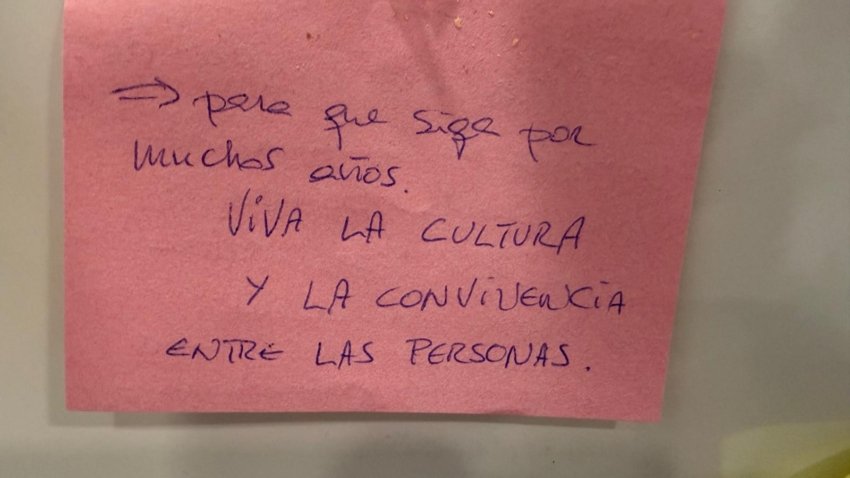 ⇒ para que siga por
muchos años.
VIVA LA CULTURA
Y LA CONVIVENCIA
ENTRE LAS PERSONAS.